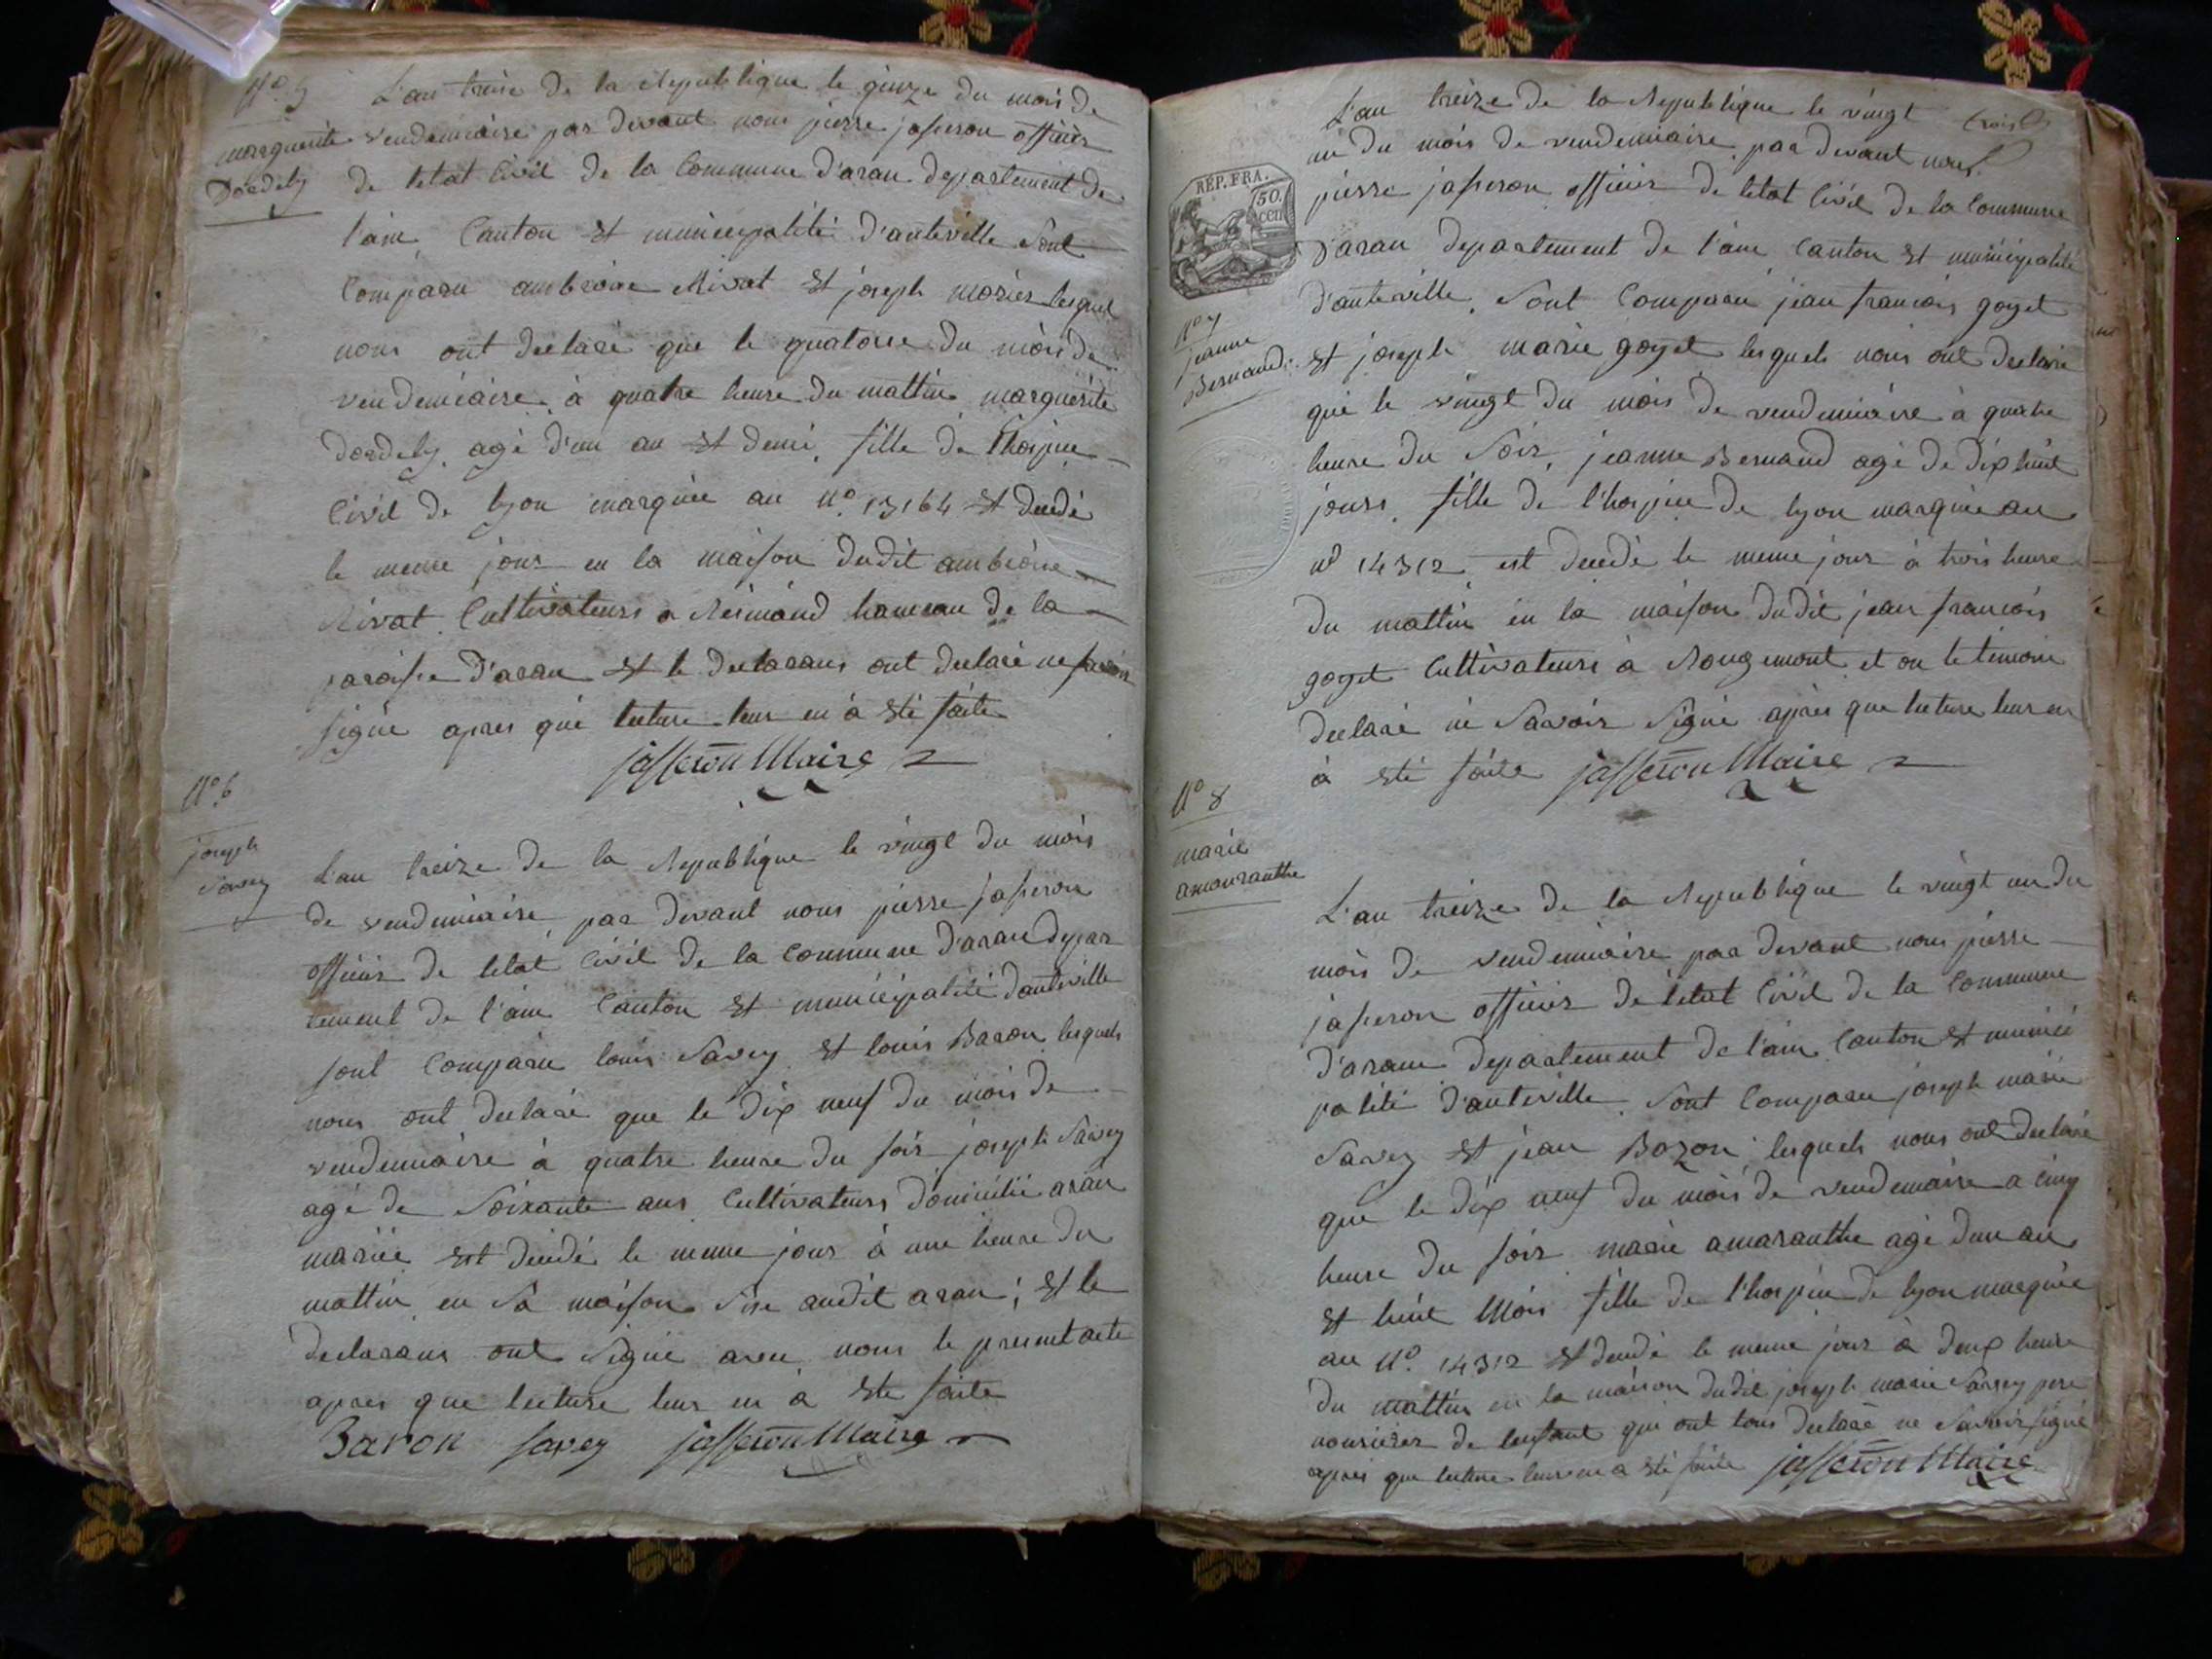 N° 5
marguerite
Dordely
L'an treise de la Republique le quinze du mois de
vendemiaire par devant nous pierre jasseron officier
de letat Civil de la Commune d'aran departement de
l'ain Canton et municipalité d'auteville sont
Comparu ambroise Rivat et joseph morier lesquel
nous ont declaré que le quatorse du mois de
vendemiaire à quatre heure du mattin marguerite
dordely agé d'un an et demi fille de l'hospice
Civil de lyon marquée au N° 13164 et decedé
le meme jour en la maison dudit ambroise
Rivat Cultivateurs a Resinand hameau de la
paroisse d'aran et le declarans ont declaré ne savoir
signé apres que lecture leur en à eté faite
jasseron Maire
N° 6
joseph
Savey
L'an treize de la Republique le vingt du mois
de vendemiaire par devant nous pierre jasseron
officier de letat Civil de la Commune d'aran depar
tement de l'ain Canton et municipalité d'auteville
sont Comparu louis Savey et louis Baron lesquels
nous ont declaré que le dix neuf du mois de
vendemiaire à quatre heure du soir joseph Savey
agé de Soixante ans Cultivateurs domicilié aran
mariée est decedé le meme jour à une heure du
mattin en Sa maison Sise audit aran ; et le
declarans ont Signé avec nous le present acte
apres que lecture leur en à eté faite
Baron savey jasseron Maire
L'an treize de la Republique le vingt
un du mois de vendemiaire par devant nous
pierre jasseron officier de letat Civil de la Commune
d'aran departement de l'ain Canton et municipalité
d'auteville. Sont Comparu jean francois goyet
et joseph marie goyet lesquels nous ont declaré
que le vingt du mois de vendemiaire à quatre
heure du Soir, jeanne Bernand agé de dix huit
jours, fille de l'hospice de lyon marquée au
n° 14312 est decedé le meme jour à trois heure
du mattin en la maison dudit jean francois
goyet Cultivateurs à Rougemont et on le temoin
declaré ne Savoir Signé après que lecture leur en
à eté faite jasseron Maire
RÉP. FRA.
50.
cen
N° 7
jeanne
Bernand
N° 8
marie
amouranthe
L'an treize de la Republique le vingt un du
mois de vendemiaire par devant nous pierre
jasseron officier de letat Civil de la Commune
d'aran departement de l'ain Canton et munici
palité d'auteville. Sont Comparu joseph marie
Savey et jean Bozon lesquels nous ont declaré
que le dix neuf du mois de vendemiaire a cinq
heure du soir marie amaranthe agé d'un an
et huit Mois fille de l'hospice de lyon marquée
au N° 14312 et decedé le meme jour à deux heure
du mattin en la maison dudit joseph marie Savey pere
nouricier de lenfant qui ont tous declaré ne Savoir signé
apres que lecture leur en a eté faite jasseron Maire